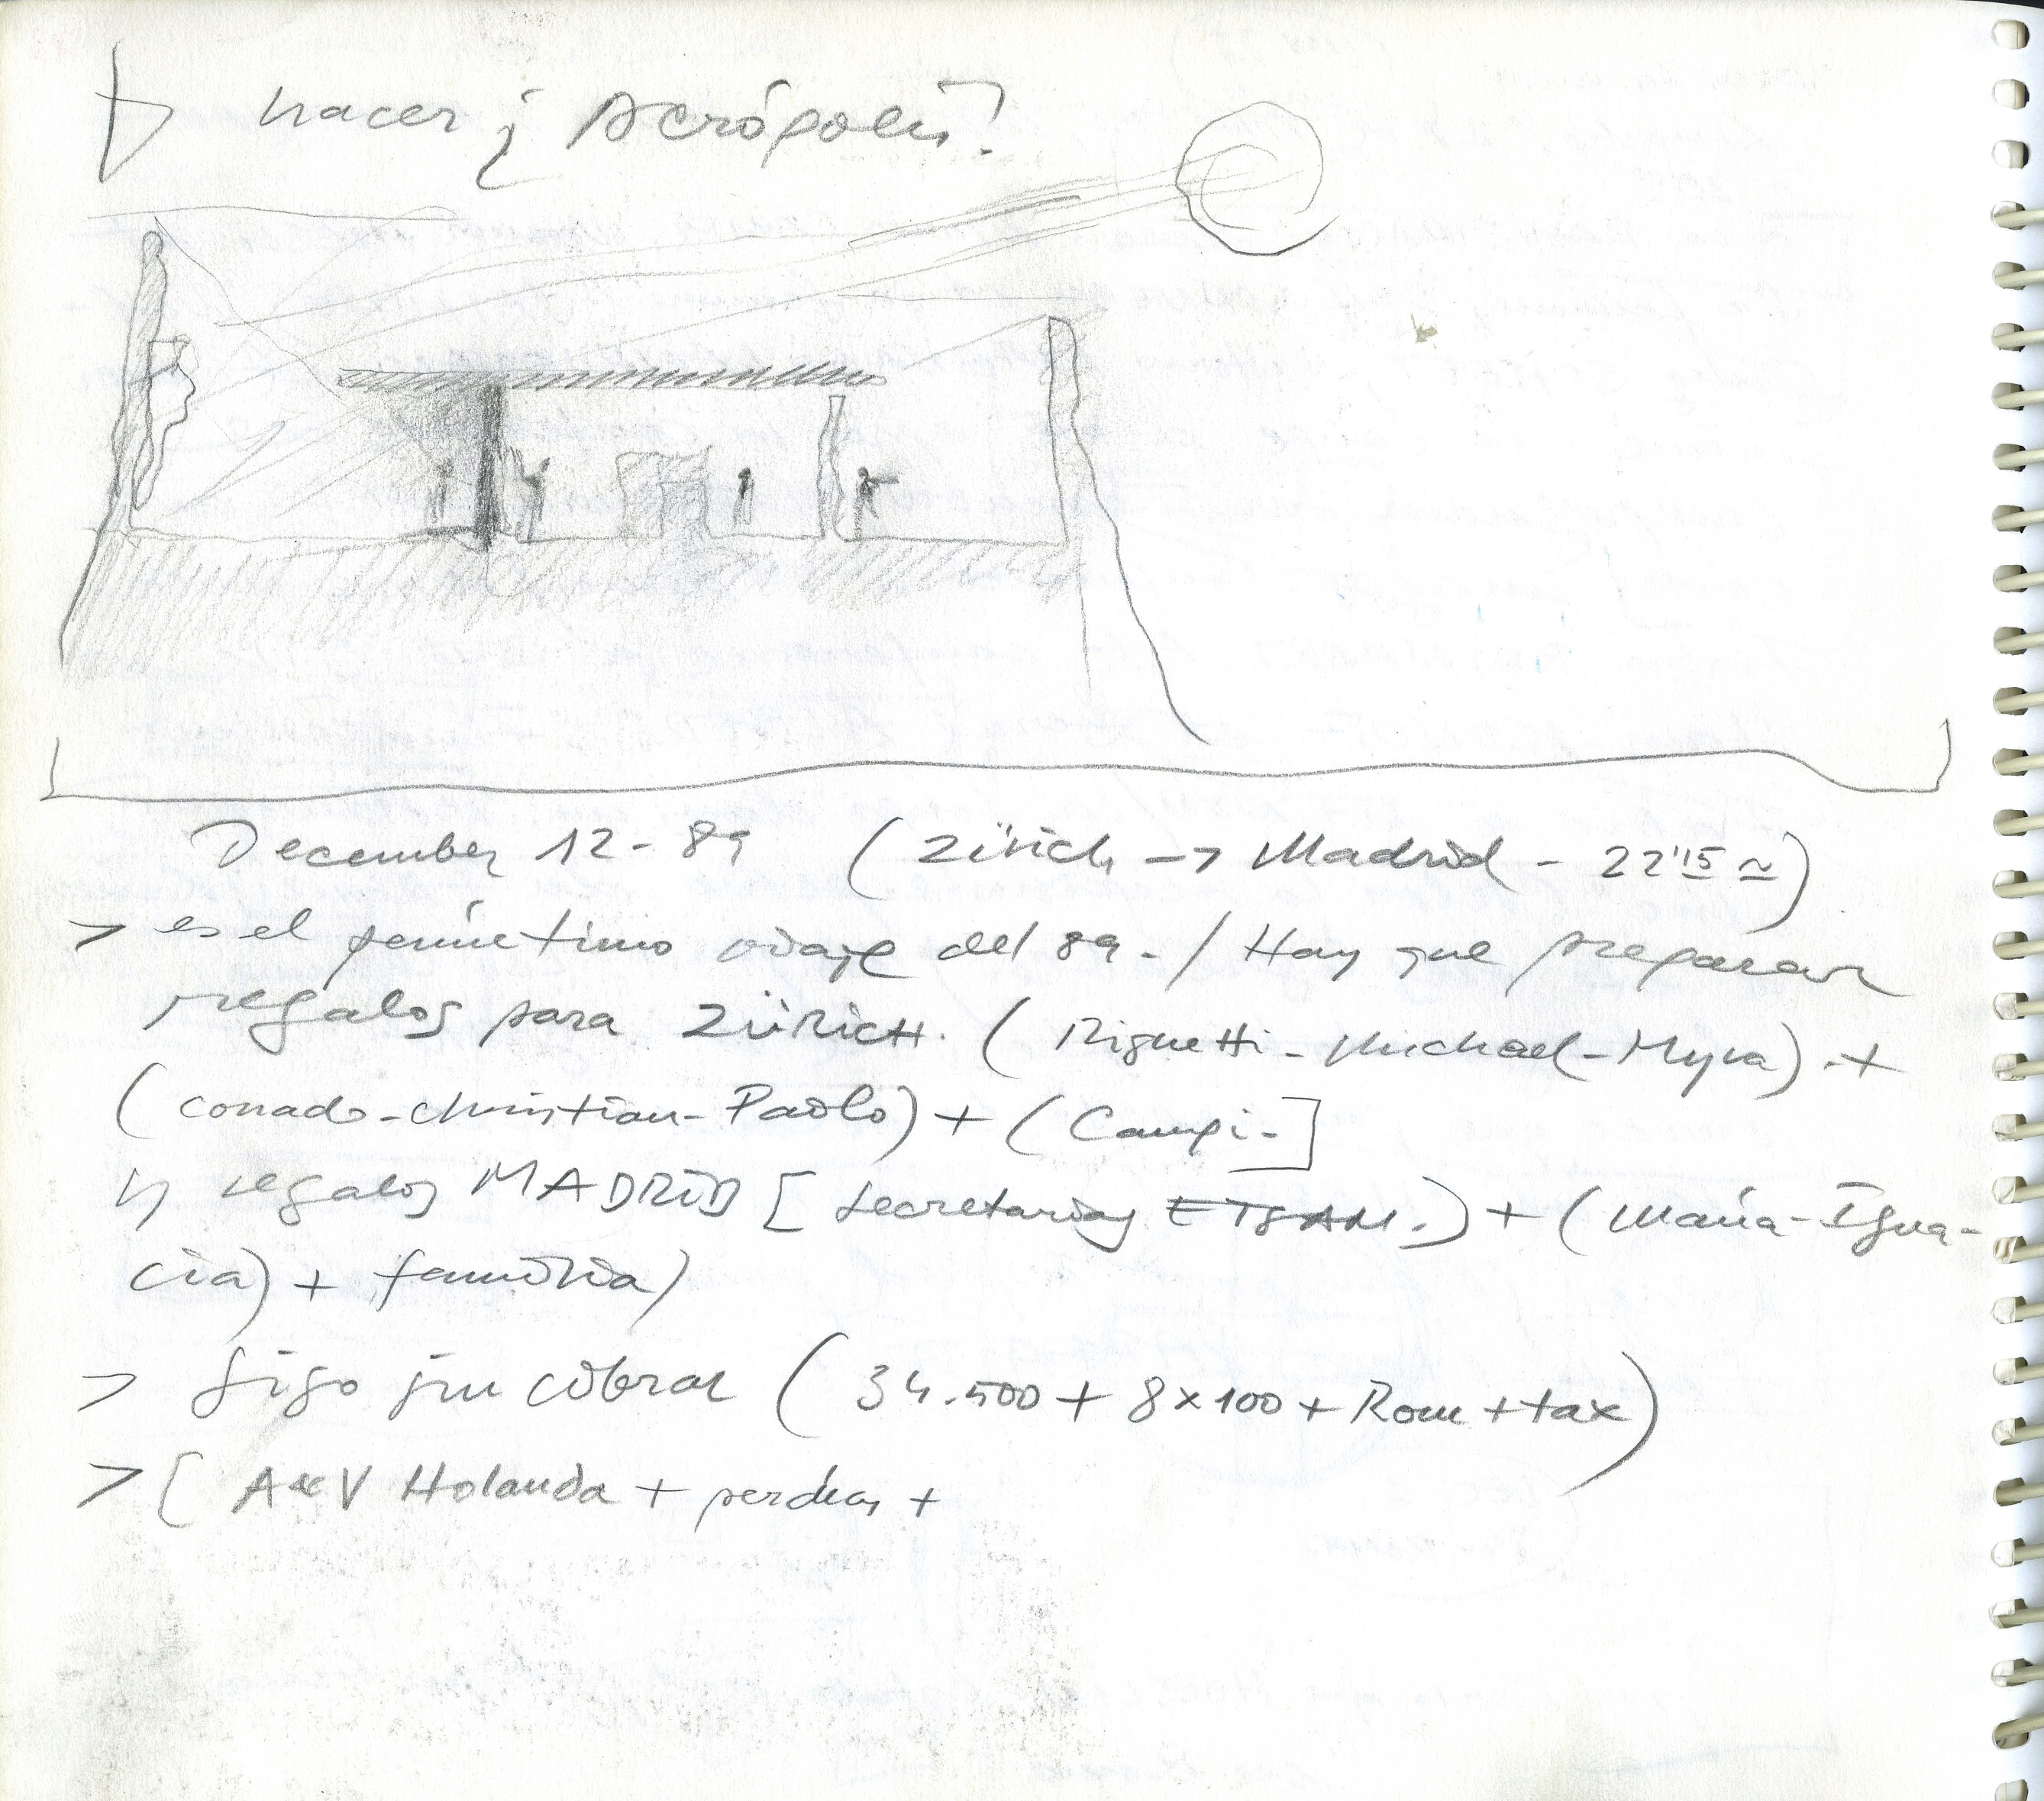 hacer ¿ Acrópolis?
December 12 - 89 (Zürich -> Madrid - 22'15 ≃)
> es el penúltimo viaje del 89. / Hay que preparar
regalos para ZÜRICH. (Righetti - Michael - Myra) . +
( - christian - Paolo) + (Campi - ]
y regalos MADRID [ secretarias ETSAM.) + (María - Igna-
cia) + familia)
> sigo sin cobrar (34.500 + 8x100 + Rom + tax)
> [ A&V Holanda + +